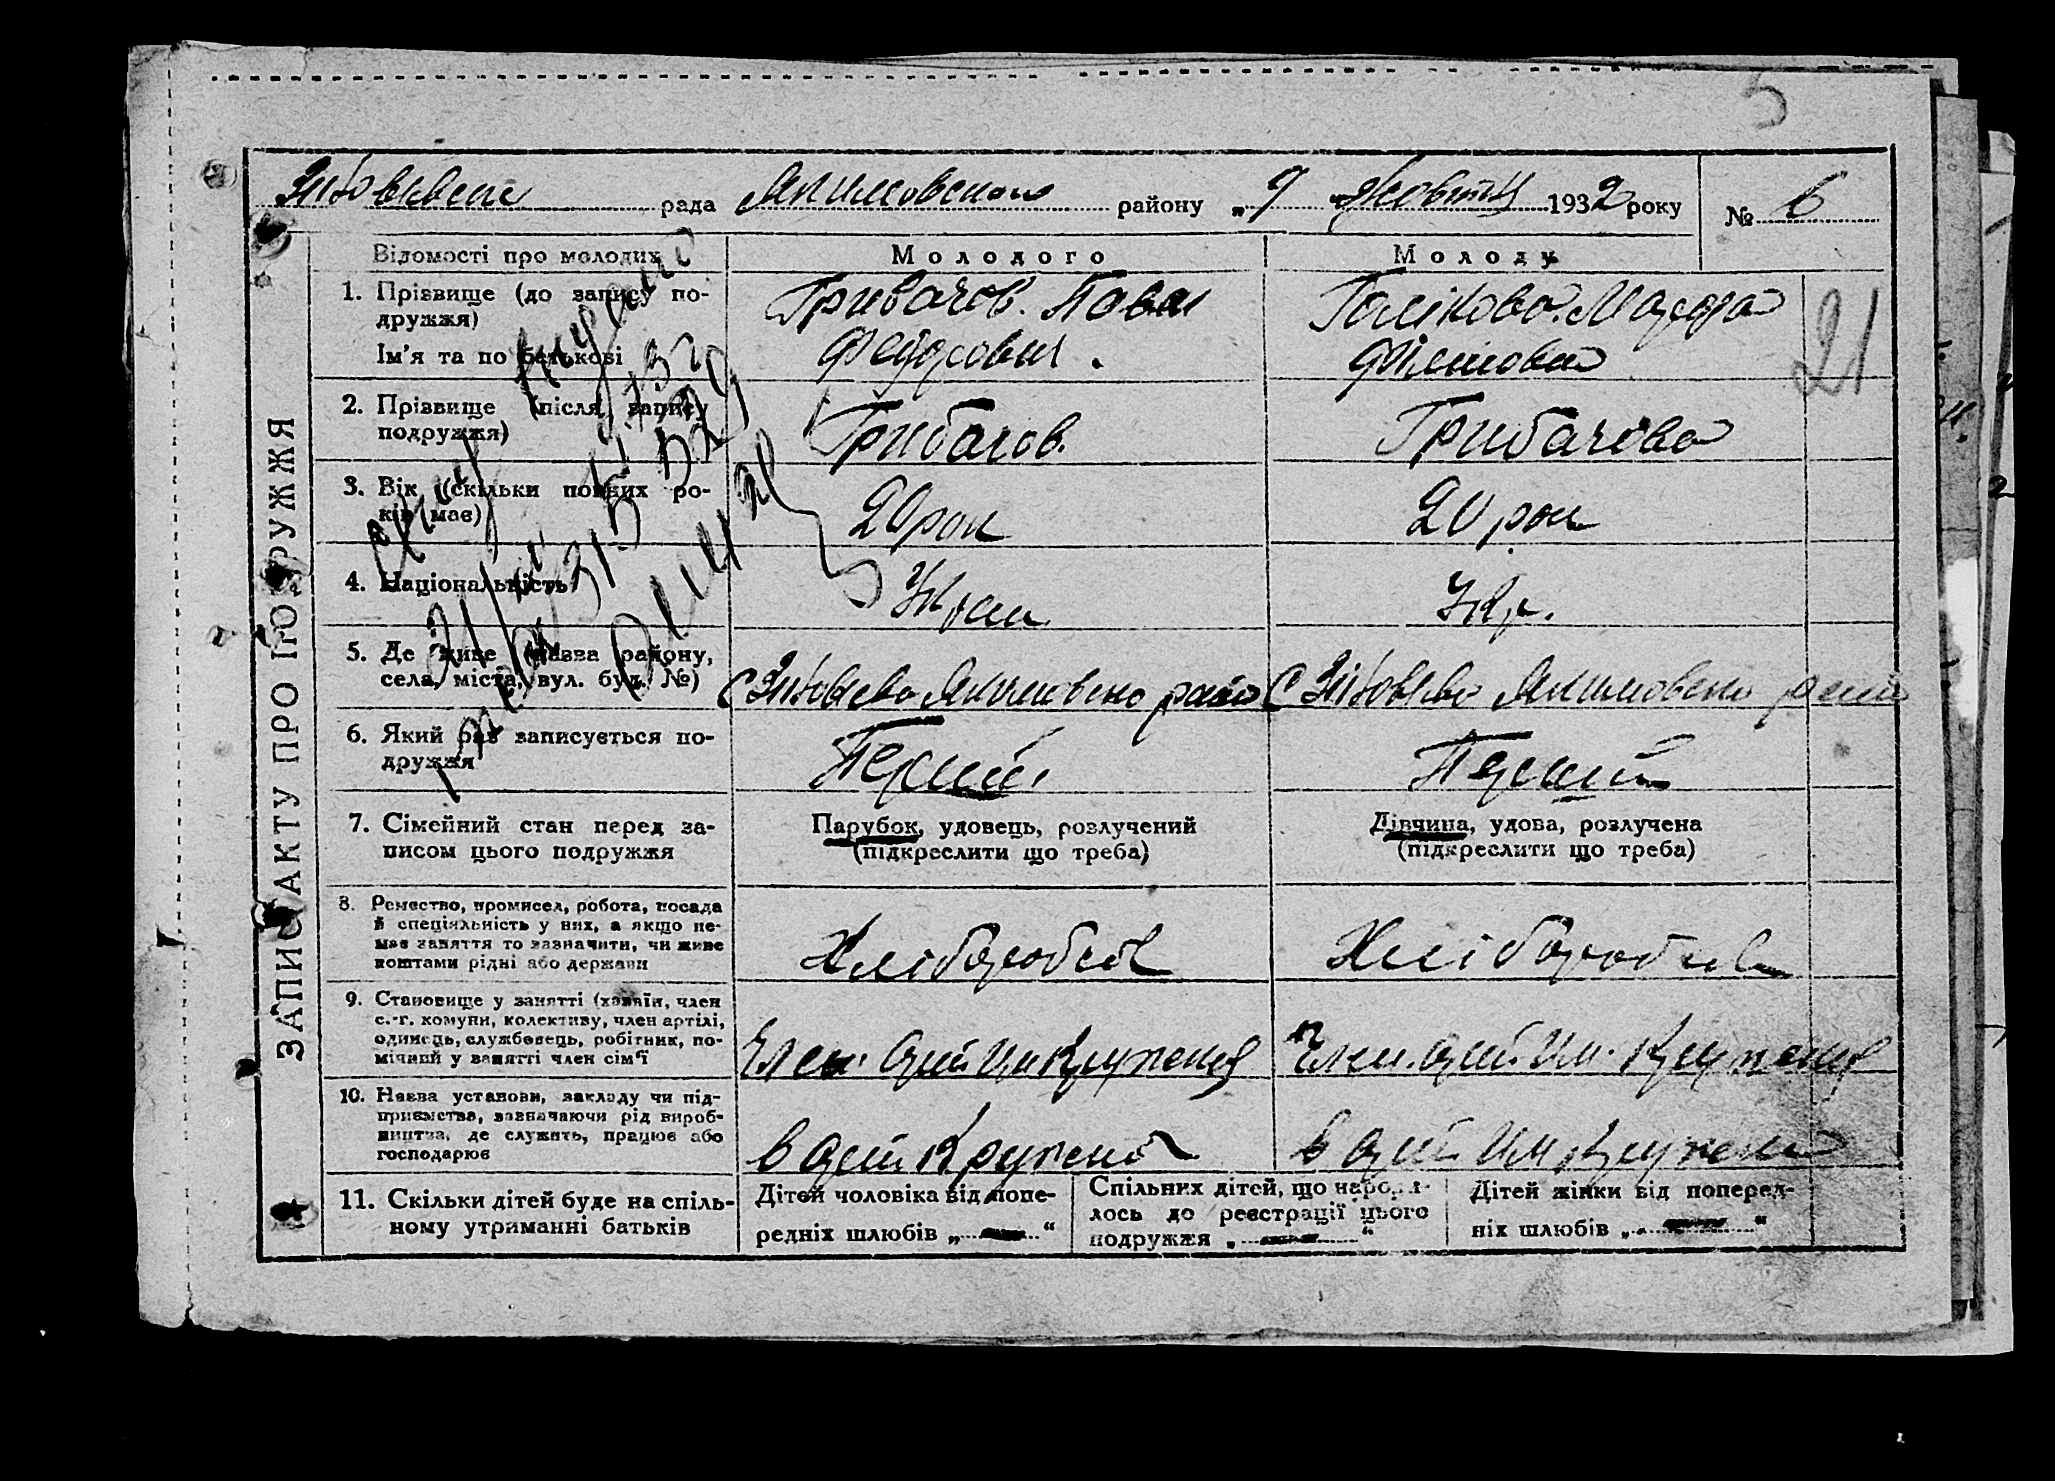 5
рада Якимовского району „ 9 " Жовтня 1932 року № 6
ЗАПИС АКТУ ПРО ПОДРУЖЖЯ
Відомості про молодих
Молодого
Молоду
1. Прізвище (до запису по-
дружжя)
Ім'я та по батькові
Грибачов. Павел
Федорович.
Голікова
21
2. Прізвище (після запису
подружжя)
Грибачов.
Грибачова
3. Вік (скільки повних ро-
ків має)
20 рок
20 рок
4. Національність
Укр.
5. Де живе (назва району,
села, міста, вул. буд. №)
6. Який раз записується по-
дружжя
Перший
Перший
7. Сімейний стан перед за-
писом цього подружжя
Парубок, удовець, розлучений
(підкреслити що треба)
Дівчина, удова, розлучена
(підкреслити що треба)
8. Ремество, промисел, робота, посада
й спеціяльність у них, а якщо не-
має заняття то зазначити, чи живе
коштами рідні або держави
Хлібороб
Хлібороб
9. Становище у занятті (хазяїн, член
с.-г. комуни, колективу, член артілі,
одинець, службовець, робітник, по-
мічний у занятті член сім'ї
Член. Арт. Им Крупской
Член. Арт. Им. Крупской
10. Назва установи, закладу чи під-
приємства, зазначаючи рід вироб-
ництва, де служить, працює або
господарює
в Арт Крупской
в Арт Им Крупской
11. Скільки дітей буде на спіль-
ному утриманні батьків
Дітей чоловіка від попе-
редніх шлюбів „ — "
Спільних дітей, що народи-
лось до реєстрації цього
подружжя „ — "
Дітей жінки від поперед-
ніх шлюбів „ — "